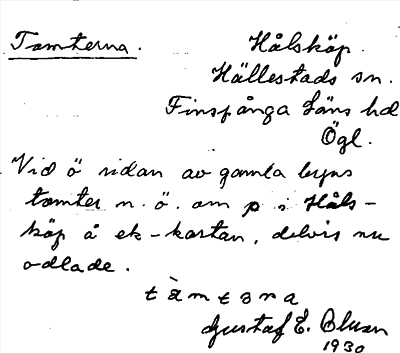 Tomterna.
Hålsköp.
Hällestads sn.
Finspånga läns hd
Ögl.
Vid ö sidan av gamla byns
tomter n. ö. om p i Håls-
köp å ek-kartan, delvis nu
odlade.
tàmtәna
Gustaf E. Bluan
1930